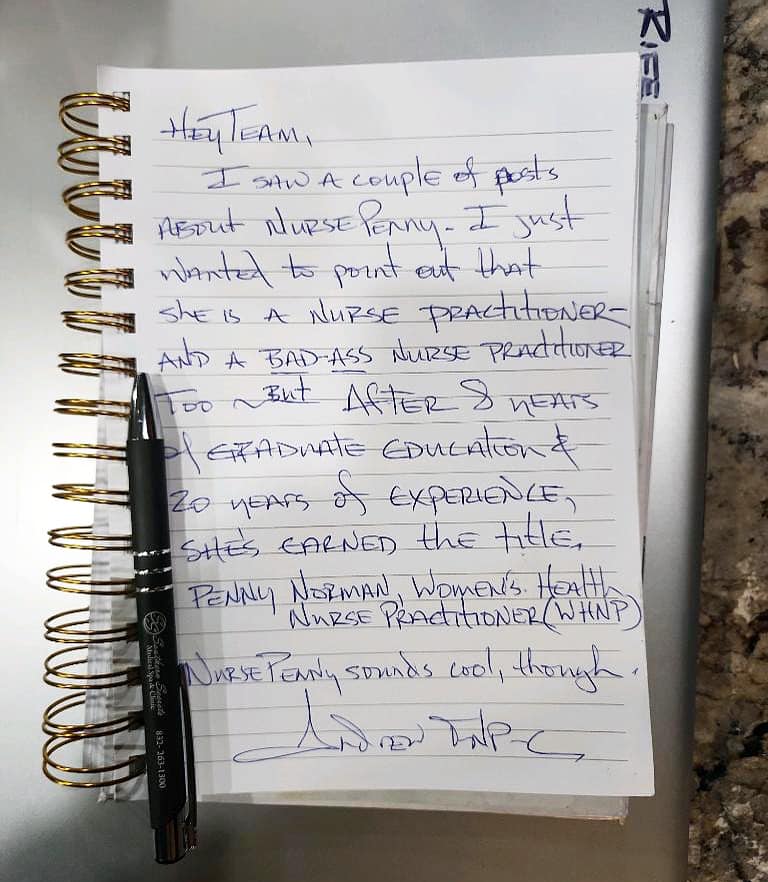 RIFE
HEY TEAM,
I SAW A COUPLE of posts
ABOUT NURSE PENNY- I just
WANTED to point out that
SHE IS A NURSE PRACTITIONER-
AND A BAD-ASS NURSE PRACTITIONER
TOO ~ BUT AFTER 8 YEARS
of GRADUATE EDUCATION &
20 YEARS of EXPERIENCE,
SHE'S EARNED the title.
PENNY NORMAN, WOMEN'S HEALTH
NURSE PRACTITIONER (WHNP)
NURSE PENNY sounds cool, though.
ANDREW FNP-C
Southern Secrets
Medical Spa & Clinic
832-263-1300